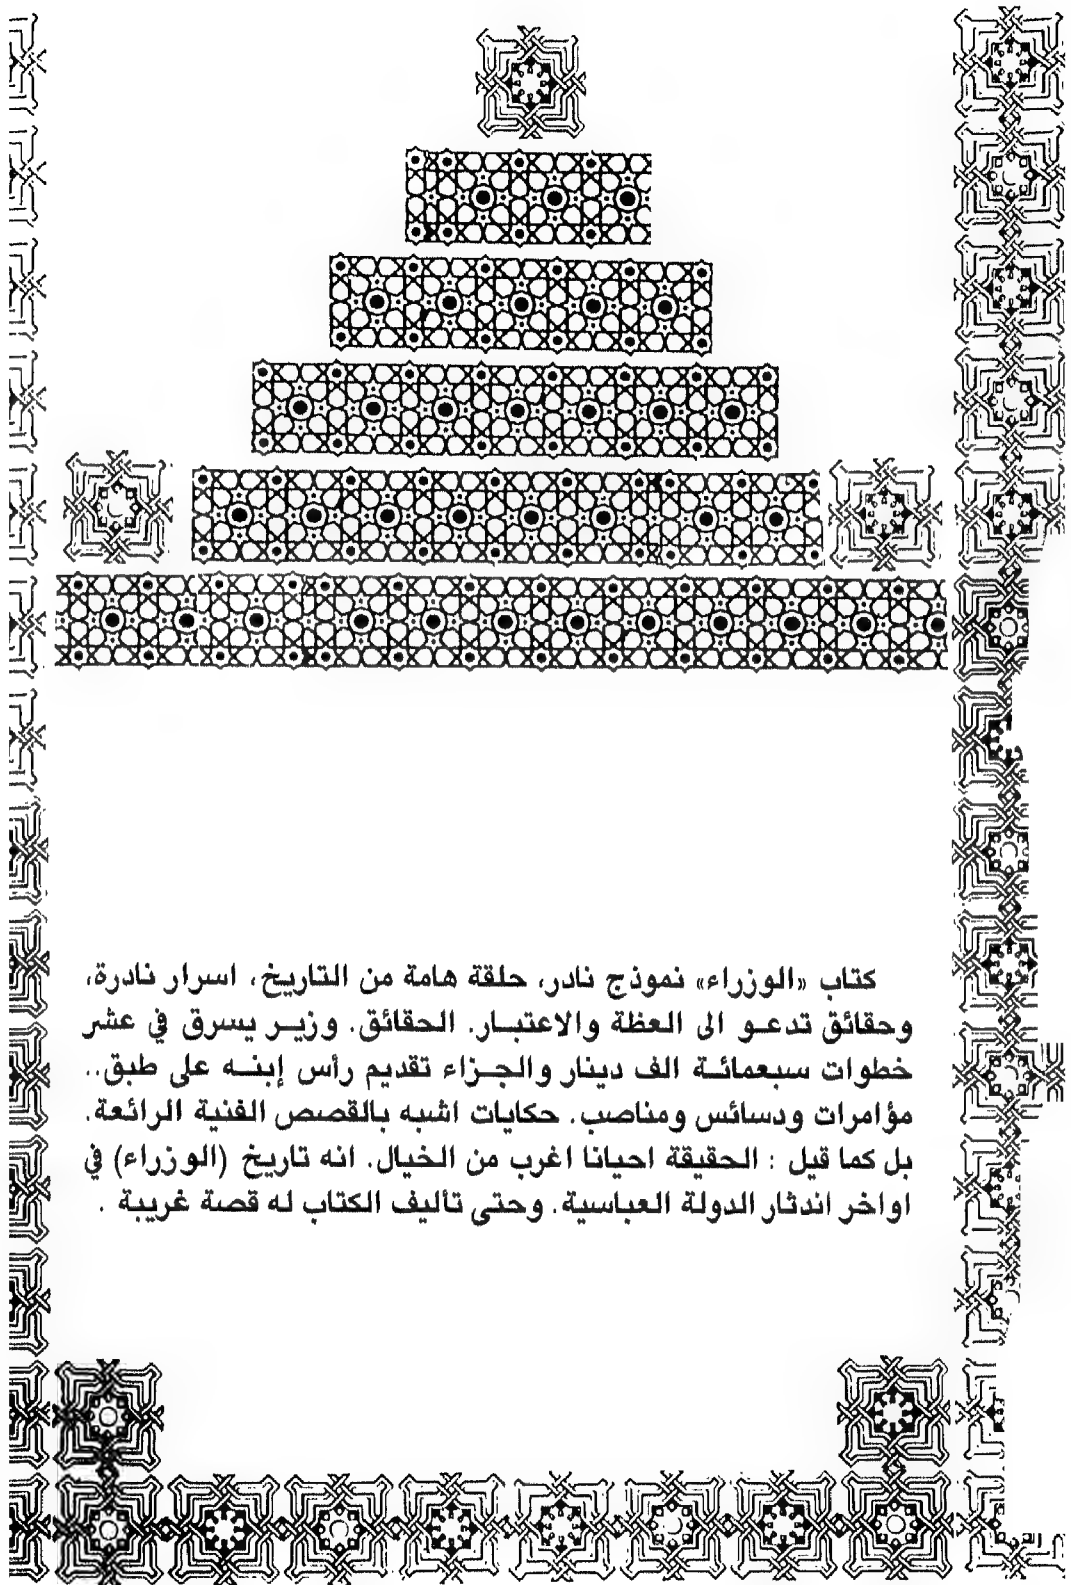 كتاب «الوزراء» نموذج نادر، حلقة هامة من التاريخ، اسرار نادرة،
وحقائق تدعو الى العظة والاعتبار. الحقائق. وزير يسرق في عشر
خطوات سبعمائة الف دينار والجزاء تقديم رأس إبنه على طبق..
مؤامرات ودسائس ومناصب. حكايات اشبه بالقصص الفنية الرائعة.
بل كما قيل : الحقيقة احيانا اغرب من الخيال. انه تاريخ (الوزراء) في
اواخر اندثار الدولة العباسية. وحتى تأليف الكتاب له قصة غريبة .